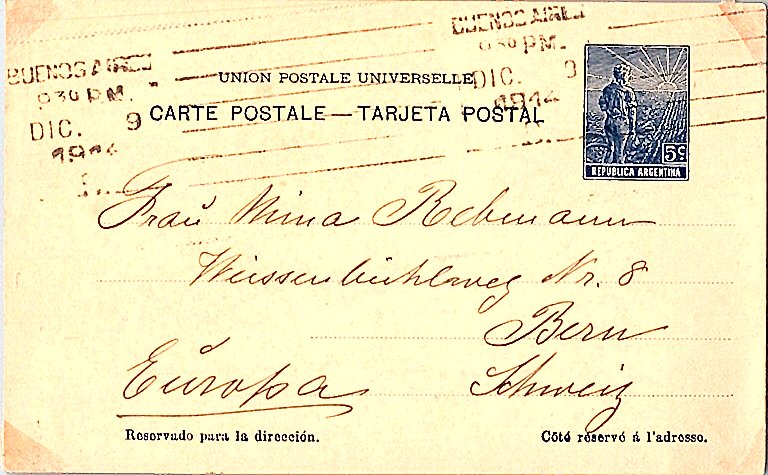 BUENOS AIRES
9 30 PM.
DIC. 9
1914
BUENOS AIRES
9 30 PM.
DIC. 9
1914
UNION POSTALE UNIVERSELLE
CARTE POSTALE — TARJETA POSTAL
5c
REPUBLICA ARGENTINA
Frau Mina Rebmann
Weissenbühlweg Nr. 8
Bern
Europa Schweiz
Reservado para la dirección.
Côté réservé á l'adresse.